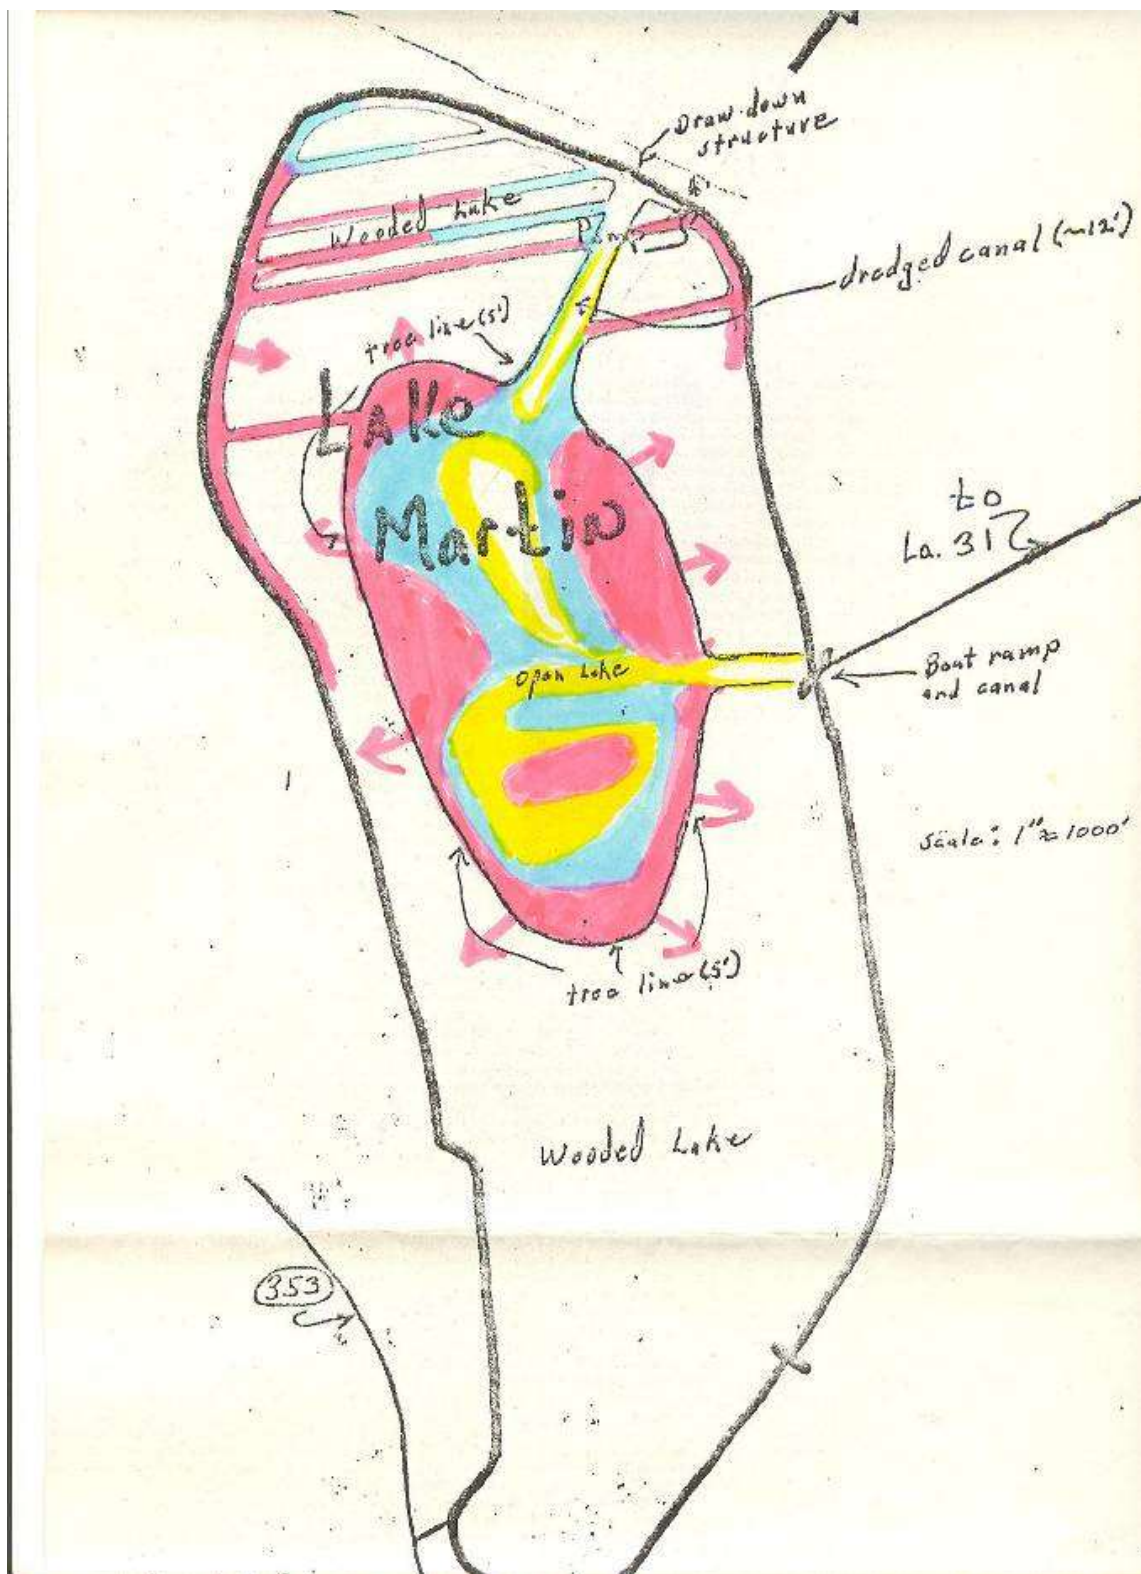 Draw-down
structure
Wooded Lake
dredged canal (~12')
tree line (5')
Lake
Martin
to
La. 31
Open Lake
Boat ramp
and canal
Scale: 1" ≈ 1000'
tree line (5')
Wooded Lake
353